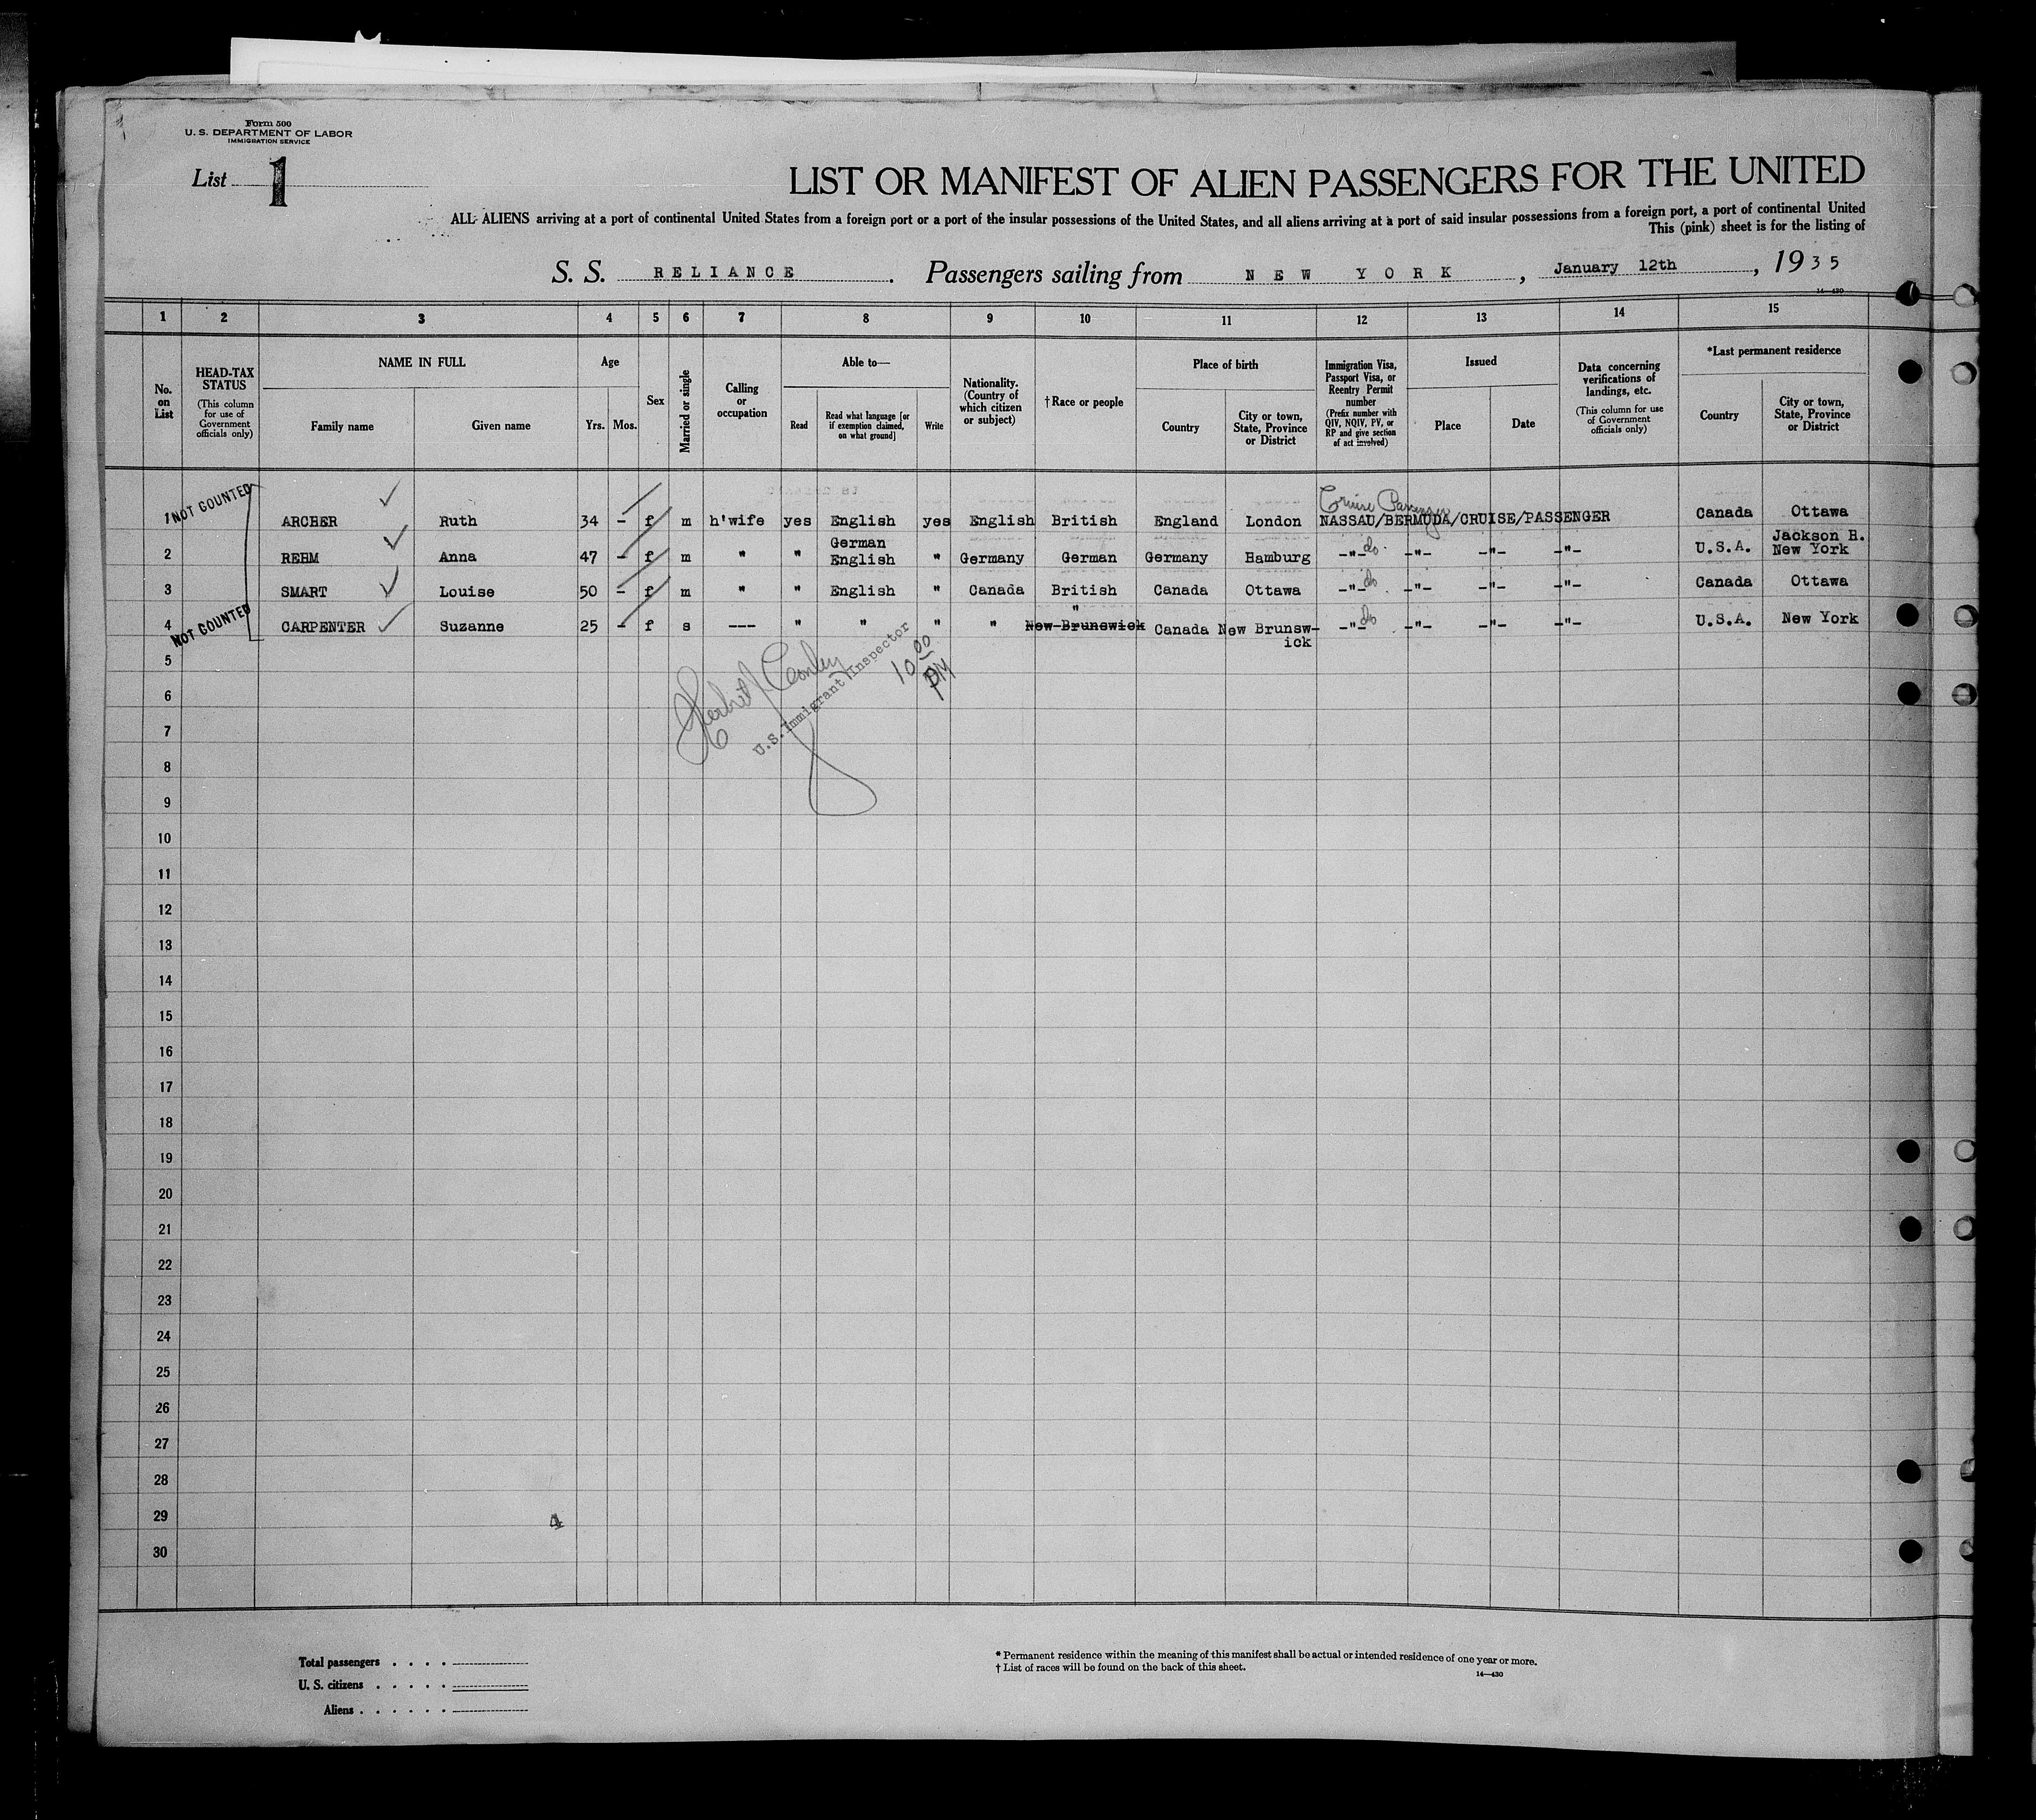 Form 500
U. S. DEPARTMENT OF LABOR
IMMIGRATION SERVICE
List 1
LIST OR MANIFEST OF ALIEN PASSENGERS FOR THE UNITED
ALL ALIENS arriving at a port of continental United States from a foreign port or a port of the insular possessions of the United States, and all aliens arriving at a port of said insular possessions from a foreign port, a port of continental United
This (pink) sheet is for the listing of
S. S. RELIANCE. Passengers sailing from NEW YORK, January 12th, 1935
14—430
1 2 3 4 5 6 7 8 9 10 11 12 13 14 15
No. on List
HEAD-TAX STATUS (This column for use of Government officials only)
NAME IN FULL
Family name Given name
Age
Yrs. Mos.
Sex
Married or single
Calling or occupation
Able to—
Read
Read what language [or if exemption claimed, on what ground]
Write
Nationality. (Country of which citizen or subject)
† Race or people
Place of birth
Country
City or town, State, Province or District
Immigration Visa, Passport Visa, or Reentry Permit number (Prefix number with QIV, NQIV, PV, or RP and give section of act involved)
Issued
Place Date
Data concerning verifications of landings, etc. (This column for use of Government officials only)
*Last permanent residence
Country
City or town, State, Province or District
NOT COUNTED
Cruise Passenger
1 ARCHER Ruth 34 - f m h'wife yes English yes English British England London NASSAU/BERMUDA/CRUISE/PASSENGER Canada Ottawa
2 REHM Anna 47 - f m " " German English " Germany German Germany Hamburg -"- do. -"- -"- -"- U.S.A. Jackson H. New York
3 SMART Louise 50 - f m " " English " Canada British Canada Ottawa -"- do. -"- -"- -"- Canada Ottawa
4 CARPENTER Suzanne 25 - f s --- " " " " " New-Brunswick Canada New Brunsw-ick -"- do -"- -"- -"- U.S.A. New York
NOT COUNTED
U.S. Immigrant Inspector
10 00 PM
5
6
7
8
9
10
11
12
13
14
15
16
17
18
19
20
21
22
23
24
25
26
27
28
29
4
30
Total passengers . . . .
U. S. citizens . . . . .
Aliens . . . . . .
* Permanent residence within the meaning of this manifest shall be actual or intended residence of one year or more.
† List of races will be found on the back of this sheet.
14—430